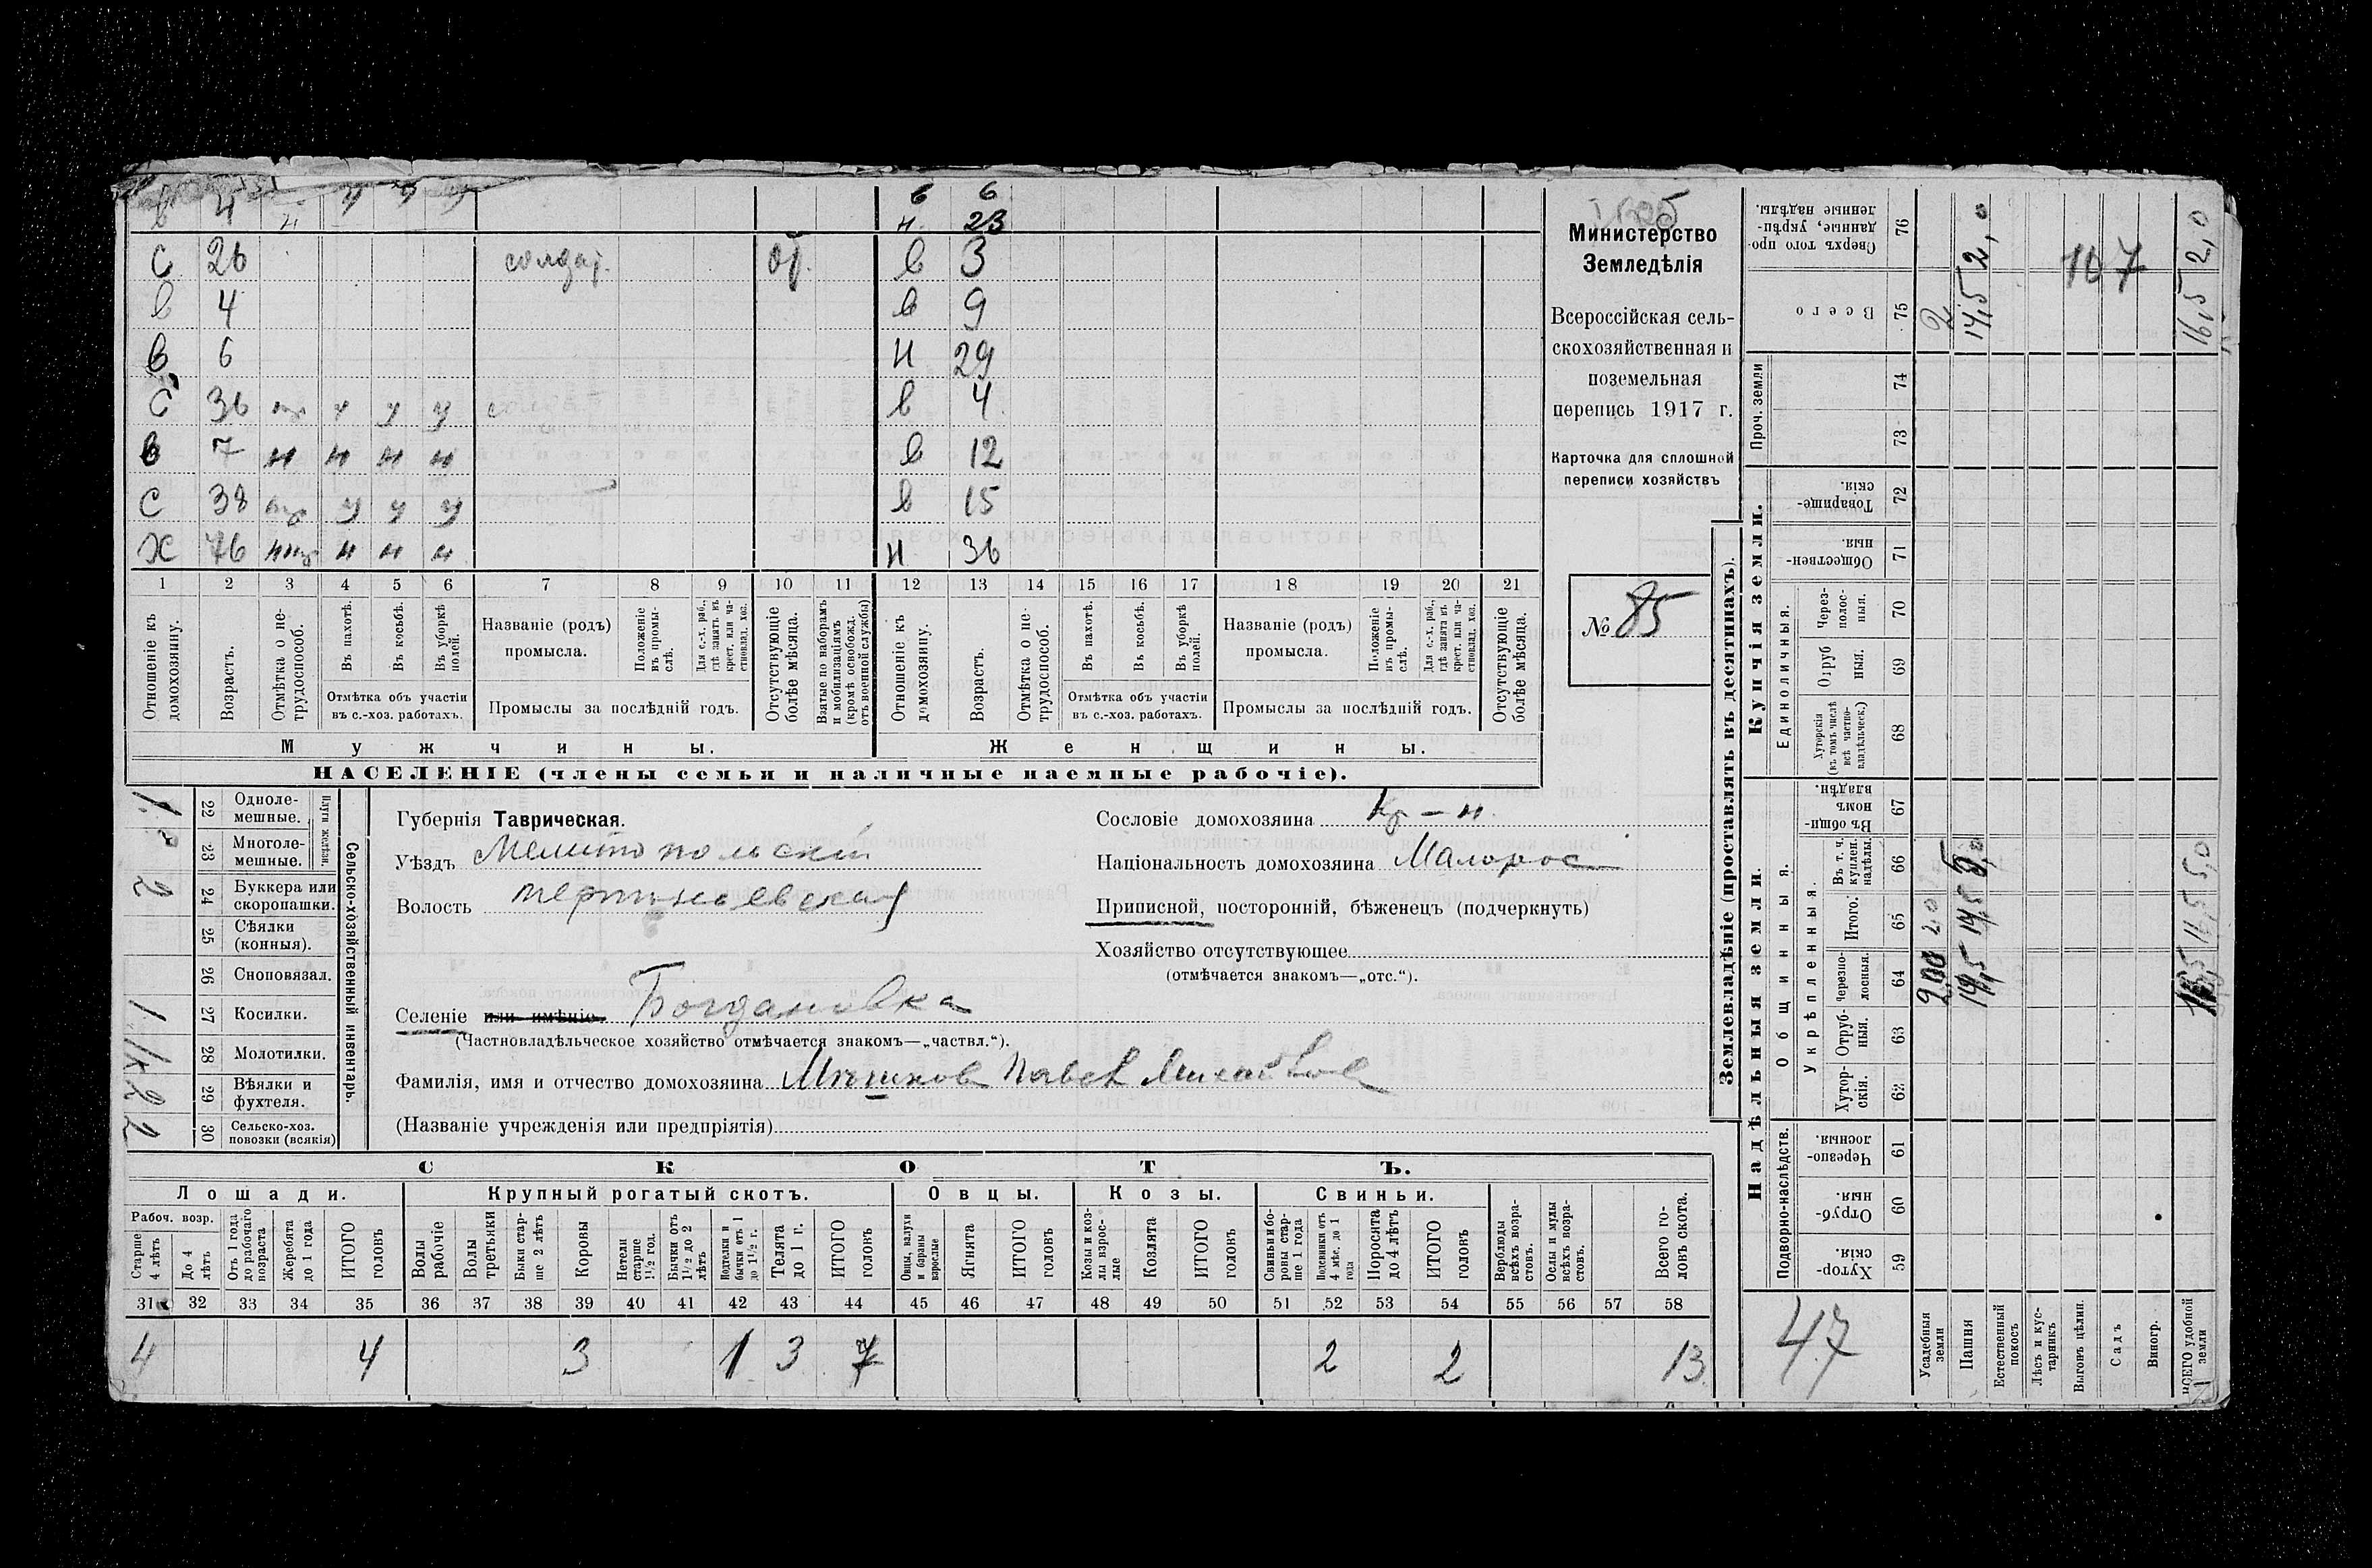 в 4 н
в 6
н. 23
с 26 солдат. от. в 3
в 4 в 9
в 6 н 29
с 36 у у у в 4
в 7 н н н н в 12
с 38 у у у в 15
х 76 н н н н 36
1 2 3 4 5 6 7 8 9 10 11 12 13 14 15 16 17 18 19 20 21
Отношеніе къ домохозяину.
Возрастъ.
Отмѣтка о нетрудоспособ.
Въ пахотѣ.
Въ косьбѣ.
Въ уборкѣ полей.
Отмѣтка объ участіи въ с.-хоз. работахъ.
Названіе (родъ) промысла.
Положеніе въ промыслѣ.
Для с.-х. раб., гдѣ занятъ въ крест. или частновлад. хоз.
Промыслы за послѣдній годъ.
Отсутствующіе болѣе мѣсяца.
Взятые по наборамъ и мобилизаціямъ (кромѣ освобожд. отъ военной службы)
Отношеніе къ домохозяину.
Возрастъ.
Отмѣтка о нетрудоспособ.
Въ пахотѣ.
Въ косьбѣ.
Въ уборкѣ полей.
Отмѣтка объ участіи въ с.-хоз. работахъ.
Названіе (родъ) промысла.
Положеніе въ промыслѣ.
Для с.-х. раб., гдѣ занята въ крест. или частновлад. хоз.
Промыслы за послѣдній годъ.
Отсутствующіе болѣе мѣсяца.
Мужчины. Женщины.
НАСЕЛЕНІЕ (члены семьи и наличные наемные рабочіе).
Министерство
Земледѣлія
Всероссійская сель-
скохозяйственная и
поземельная
перепись 1917 г.
Карточка для сплошной
переписи хозяйствъ
№ 85
Сельско-хозяйственный инвентарь.
Плуги желѣзн.
22 Одноле-мешные. 1
23 Многоле-мешные.
24 Буккера или скоропашки. 2
25 Сѣялки (конныя).
26 Сноповязал.
27 Косилки. 1
28 Молотилки. 1к
29 Вѣялки и фухтеля. 2
30 Сельско-хоз. повозки (всякія) 2
Губернія Таврическая.
Уѣздъ Мелитопольскій
Волость
Селеніе или имѣніе Богдановка
(Частновладѣльческое хозяйство отмѣчается знакомъ—„частвл.“).
Фамилія, имя и отчество домохозяина Павел Михайлов
(Названіе учрежденія или предпріятія)
Сословіе домохозяина Кр-н
Національность домохозяина Малорос
Приписной, посторонній, бѣженецъ (подчеркнуть)
Хозяйство отсутствующее
(отмѣчается знакомъ—„отс.“).
СКОТЪ.
Лошади. Крупный рогатый скотъ. Овцы. Козы. Свиньи.
Рабоч. возр.
Старше 4 лѣтъ
До 4 лѣтъ
Отъ 1 года до рабочаго возраста
Жеребята до 1 года
ИТОГО головъ
Волы рабочіе
Волы третьяки
Быки старше 2 лѣтъ
Коровы
Нетели старше 1½ год.
Бычки отъ 1½ до 2 лѣтъ
Подтелки и бычки отъ 1 до 1½ г.
Телята до 1 г.
ИТОГО головъ
Овцы, валухи и бараны взрослые
Ягнята
ИТОГО головъ
Козы и козлы взрослые
Козлята
ИТОГО головъ
Свиньи и боровы старше 1 года
Подсвинки отъ 4 мѣс. до 1 года
Поросята до 4 лѣтъ
ИТОГО головъ
Верблюды всѣхъ возрастовъ.
Ослы и мулы всѣхъ возрастовъ.
Всего головъ скота.
31 32 33 34 35 36 37 38 39 40 41 42 43 44 45 46 47 48 49 50 51 52 53 54 55 56 57 58
4 4 3 1 3 7 2 2 13
Землевладѣніе (проставлять въ десятинахъ).
Сверхъ того проданные, укрѣпленные надѣлы. 76
Всего 75
Проч. земли
74
73
Купчія земли.
Товарищескія. 72
Общественныя. 71
Единоличныя.
Черезполосныя. 70
Отрубныя. 69
Хуторскія (въ томъ числѣ всѣ частновладѣльческ.) 68
Надѣльныя земли.
Общинныя.
Въ общинномъ владѣн. 67
Укрѣпленныя.
Въ т. ч. куплен. надѣлы. 66
Итого. 65
Черезполосныя. 64
Отрубныя. 63
Хуторскія. 62
Подворно-наслѣдств.
Черезполосныя. 61
Отрубныя. 60
Хуторскія. 59
47
Усадебныя земли
Пашня
Естественный покосъ
Лѣсъ и кустарникъ
Выгонъ цѣлин.
Садъ
Виногр.
ВСЕГО удобной земли
2
14,5 2,0
107
16,5 2,0
2,0
14,5 14,5 5,0
16,5 5,0